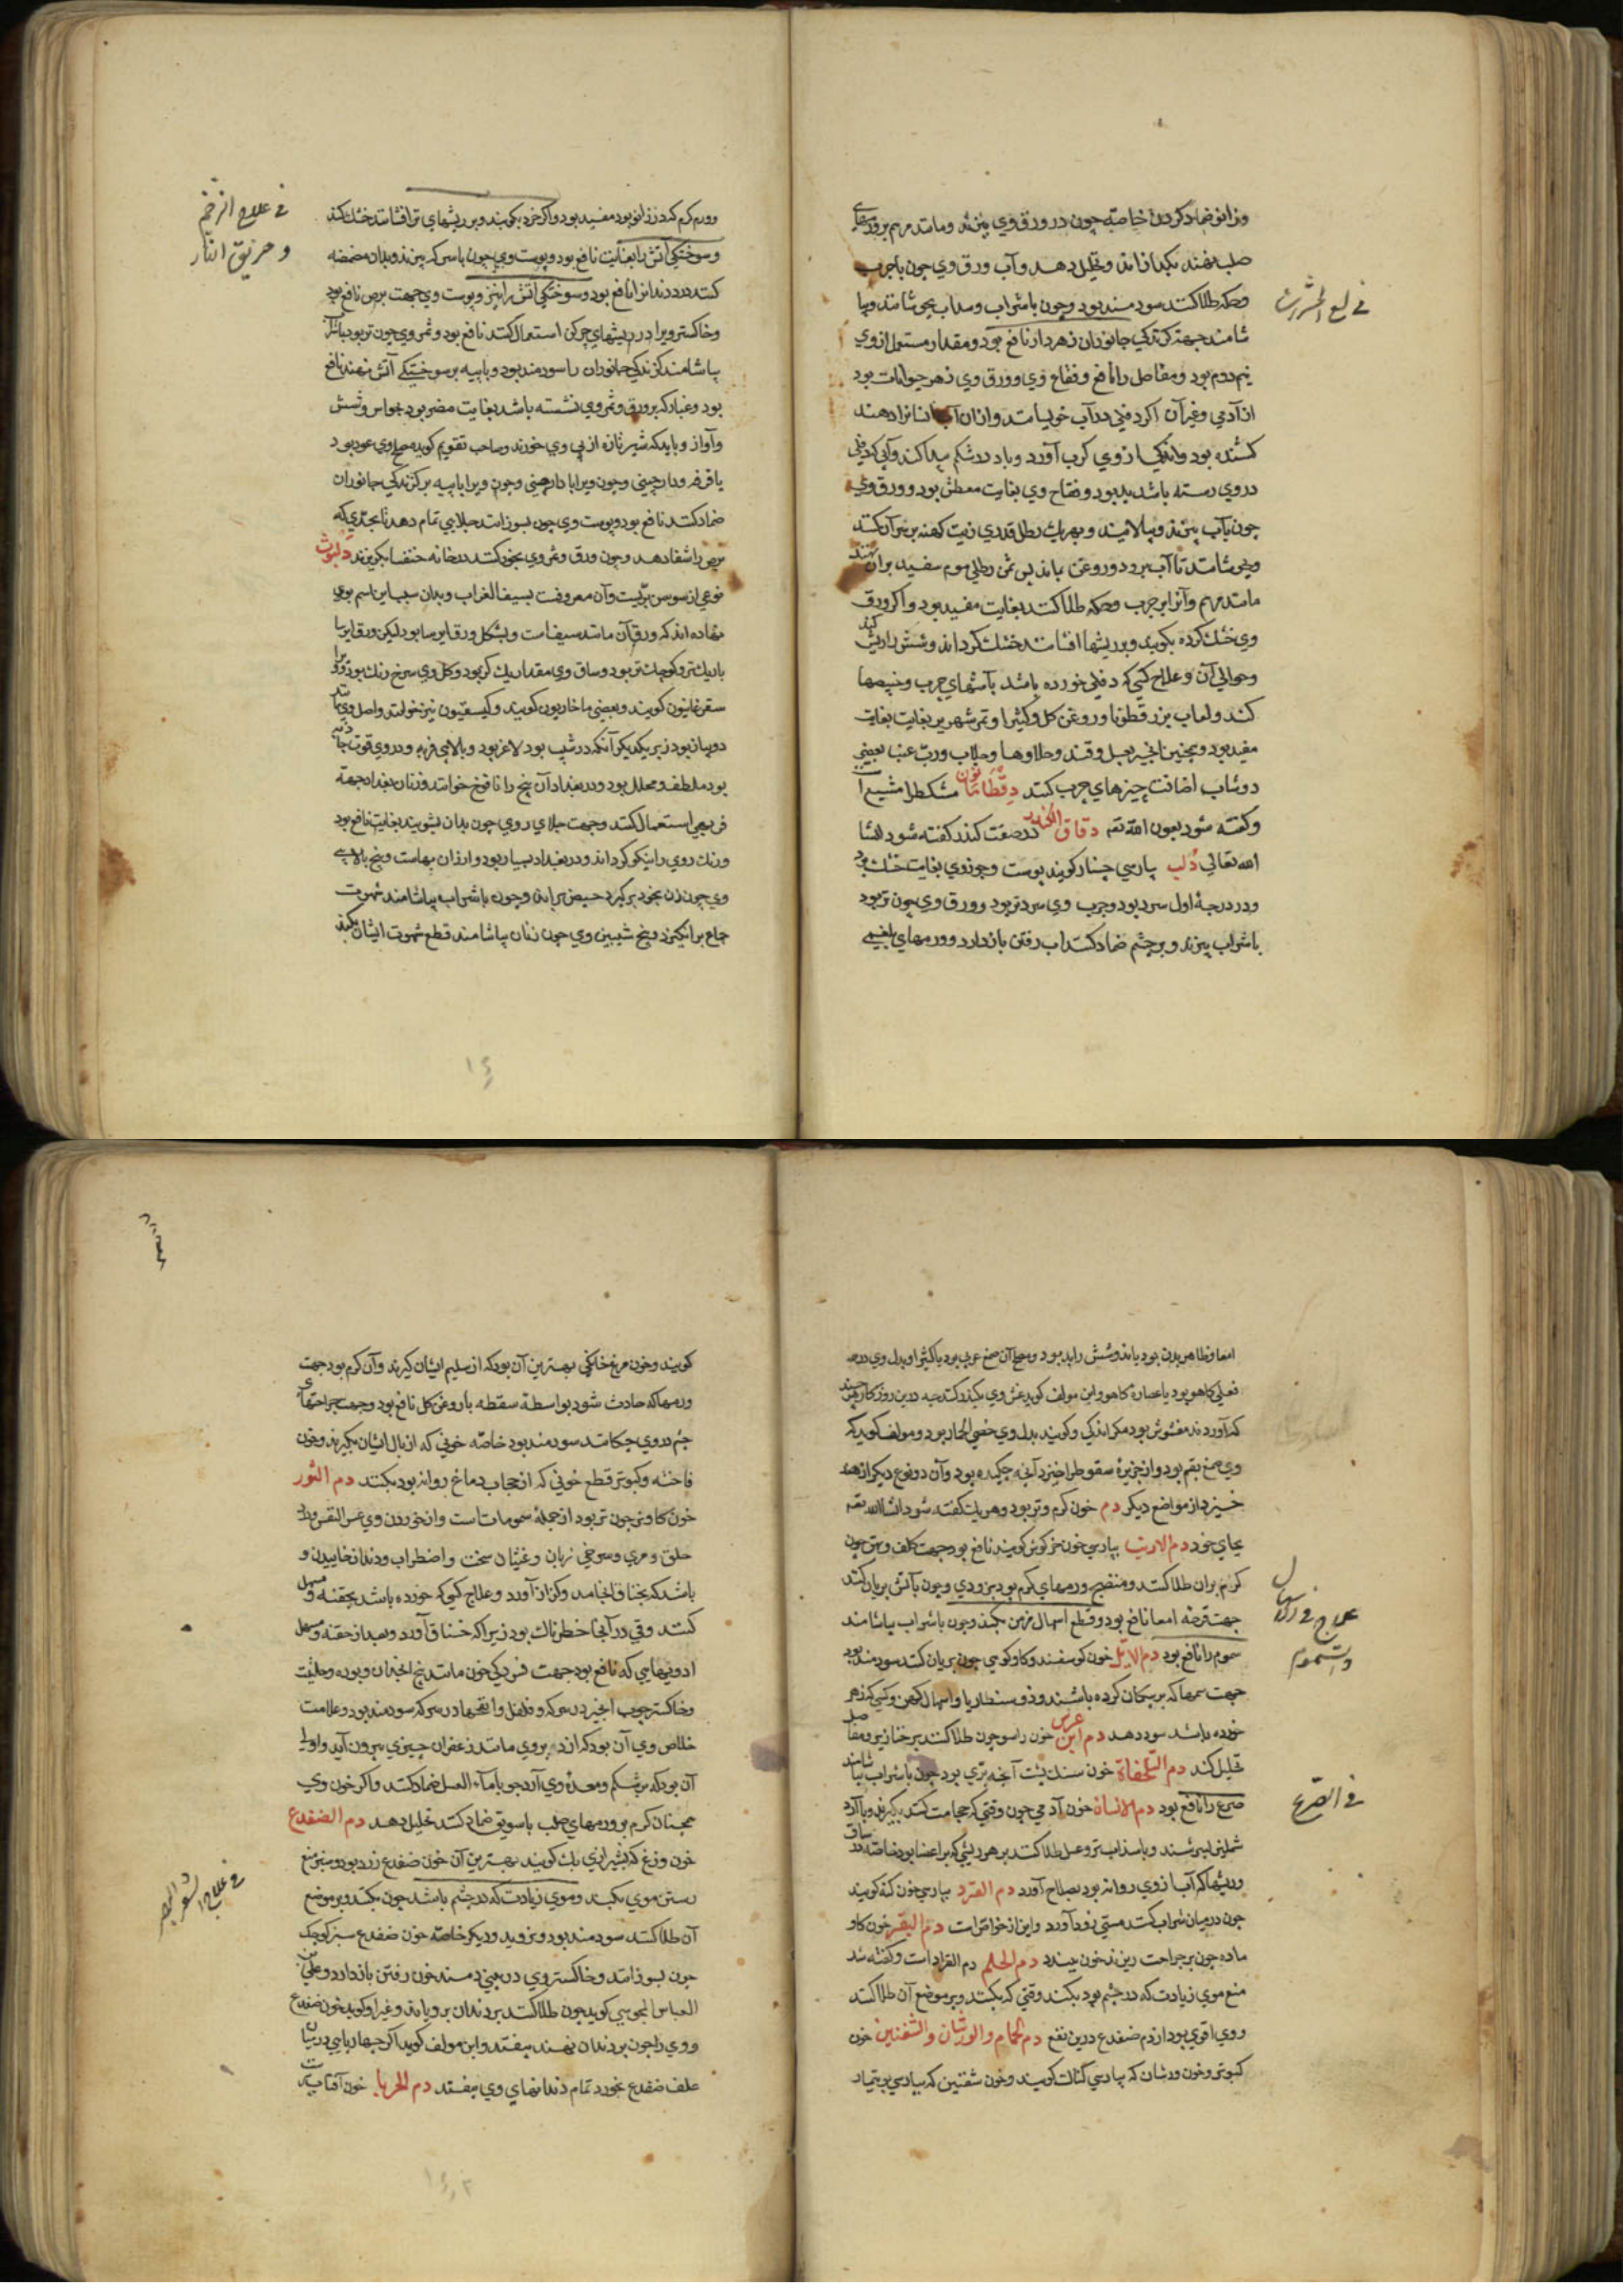 وزانو ضماد کردن خاصه چون در ورق وی بپزند ومانند مرهم بر ورمهای
صلب نهند بکدازاند وتحلیل دهد وآب ورق وی چون باجرب
وحکه طلا کنند سودمند بود وچون باشراب وسداب بجوشانند وبیا
شامند جهة کزندکی جانوران زهردار نافع بود ومقدار مستعمل از وی
نیم درم بود ومفاصل را نافع وفقاح وی وورق وی زهر حیوانات بود
از آدمی وغیر آن اکر دفلی در آب خویسانند واز ان آب انسانرا دهند
کشنده بود واندکی از وی کرب آورد وباد در شکم پیدا کند وآبی که دفلی
در وی رسته باشد بد بود وفقاح وی بغایت معطش بود وورق وی
چون بآب بپزند وبپالایند وبهر یک رطل قدری زیت کهنه بر سر آن کنند
ومیجوشانند تا آب برود وروغن بماند پس ثمن رطلی موم سفید بر ان نهند
مانند مرهم وآنرا بر جرب وحکه طلا کنند بغایت مفید بود واکر ورق
وی خشک کرده بکوبند وبر ریشها افشانند خشک کرداند وشش را ریش کند
وحوالی آن وعلاج کسی که دفلی خورده باشد بآشهای چرب وخبیصها
کنند ولعاب بزر قطونا وروغن کل وکثیرا وتمر شهریز بغایت بغایت
مفید بود وهمچنین انجیر بعسل وقند وحلاوها وجلاب ورب عنب یعنی
دوشاب اضافت چیزهای چرب کنند دقطامانون مشکطرامشیع است
وکفته شود بعون الله تعه دقاق الکندر در صفت کندر کفته شود انشا
الله تعالی دلب بپارسی چنار کویند پوست وجوز وی بغایت خشک بود
ودر درجهٔ اول سرد بود وچرب وی سردتر بود وورق وی چون تر بود
باشراب بپزند وبر چشم ضماد کنند اب رفتن بازدارد وورمهای بلغمی
فی لسع الحشرات
وورم کرم که در زانو بود مفید بود واکر خرد بکوبند وبر ریشهای تر افشانند خشک کند
وسوختکی آتش را بغایت نافع بود وپوست وی چون باسرکه بپزند وبدان مضمضه
کنند درد دندانرا نافع بود وسوختکی آتش را نیز وپوست وی جهت برص نافع بود
وخاکستر ویرا در ریشهای چرکن استعمال کنند نافع بود وثمر وی چون تر بود باشراب
بیاشامند کزندکی جانوران را سودمند بود وباپیه بر سوختکی آتش نهند نافع
بود وغبار که بر ورق وثمر وی نشسته باشد بغایت مضر بود بحواس وشش
وآواز وباید که شیر تازه از پی وی خورند وصاحب تقویم کوید مصلح وی عود بود
یا قرفه ودارچینی وچون ویرا با دارچینی وچون ویرا باپیه بر کزندکی جانوران
ضماد کنند نافع بود وپوست وی چون بسوزانند جلایی تمام دهد تا بحدی که
برص را شفا دهد وچون ورق وثمر وی بخور کنند در خانه خنفسا بکریزند دلبوث
نوعی از سوسن بریست وآن معروفست بسیف الغراب وبدان سبب این اسم بوی
نهاده اند که ورق آن مانند سیفست وبشکل ورق ایرسا بود لیکن ورق ایرسا
باریکتر وکوچکتر بود وساق وی مقدار یک کز بود وکل وی سرخ رنک بود ویرا
سقرغانیون کویند وبعضی ماخاریون کویند وکیسفیون نیز خوانند واصل وی مانند
دو پیاز بود زبر یکدیکر آنکه در شیب بود لاغر بود وبالایی فربه ودر وی قوت جاذبه
بود ملطف ومحلل بود ودر بغداد آن بیخ را نافوخ خوانند وزنان بغداد جهة
فربهی استعمال کنند وجهت جلای روی چون بدان بشویند بغایت نافع بود
ورنک روی را نیکو کرداند ودر بغداد بسیار بود وارزان بهاست وبیخ بالایی
وی چون زن بخود برکیرد حیض براند وچون باشراب بیاشامند شهوت
جماع برانکیزد وبیخ شیبین وی چون زنان بیاشامند قطع شهوت ایشان بکند
فی علاج الزخم
وحریق النار
امعا وظاهر بدن بود بیاند وشش را بد بود ومصلح آن صمغ عربی بود یا کثیرا وبدل وی در همه
فعلی کاهو بود یا عصاره کاهو واین مولف کوید غش وی بکندر کنند چه درین روزکار هرچند
که آوردند مغشوش بود مکر اندکی وکویند بدل وی خصی الحمار بود ومولف کوید که
وی صمغ بقم بود واز جزیرهٔ سقوطرا خیزد آنچه چکیده بود وآن دو نوع دیکر از هند
خیزد از مواضع دیکر دم خون کرم وتر بود وهر یک کفته شود انشاالله تعه
بجای خود دم الارنب بپارسی خون خرکوش کویند نافع بود جهت کلف وبهق چون
کرم بران طلا کنند ومنضج ورمهای کرم بود بزودی وچون بآتش بریان کنند
جهت قرحه امعا نافع بود وقطع اسهال مزمن بکند وچون باشراب بیاشامند
سموم را نافع بود دم الایل خون کوسفند وکاو کوهی چون بریان کنند سودمند بود
جهت سمها که بر پیکان کرده باشند وذوسنطاریا واسهال کهن وکسی که زهر
خورده باشد سود دهد دم ابن عرس خون راسو چون طلا کنند بر خنازیر ومفاصل
تحلیل کند دم السلحفاة خون سنک پشت آنچه بری بود چون باشراب بیاشامند
صرع را نافع بود دم الانسان خون آدمی چون وقتی که حجامت کنند بکیرند وبا آرد
شلیلم بسرشند وباسداب تر وعسل طلا کنند بر هر ریشی که بر اعضا بود خاصه در ساق
وریشها که آب از وی روانه بود بصلاح آورد دم القرد بپارسی خون کپه کویند
چون در میان شراب کنند مستی زود آورد واین از خواص است دم البقر خون کاو
ماده چون بر جراحت ریزند خون ببندد دم الحلم دم القرادات وکفته شد
منع موی زیادت که در چشم بود بکند وقتی که بکنند وبر موضع آن طلا کنند
ووی اقوی بود از دم ضفدع درین نفع دم الحمام والورشان والشفنین خون
کبوتر وخون ورشان که بپارسی کتک کویند وخون شفنین که بپارسی بوتیمار
علاج فی الاسهال
والسموم
فی الصرع
کویند وخون مرغ خانکی بهترین آن بود که از سلیم ایشان کیرند وآن کرم بود جهت
ورمها که حادث شود بواسطهٔ سقطه باروغن کل نافع بود وجهت جراحتهای
چشم در وی چکانند سودمند بود خاصه خونی که از بال ایشان بکیرند وخون
فاخته وکبوتر قطع خونی که از حجاب دماغ روانه بود بکنند دم الثور
خون کاو نر چون تر بود از جملهٔ سمومات است واز خوردن وی عسر النفس ودرد
حلق ومری وسرخی زبان وغثیان سخت واضطراب ودندان خاییدن و
باشد که بخناق انجامد وکزاز آورد وعلاج کسی که خورده باشد بحقنه ومسهل
کنند وقی در آنجا خطرناک بود زیرا که خناق آورد وبعد از حقنه ومسهل
ادویهایی که نافع بود جهت فسردکی خون مانند بیخ انجدان وبوره وحلتیت
وخاکستر چوب انجیر در سرکه وفلفل وانفحها در سرکه سودمند بود وعلامت
خلاص وی آن بود که از دبر وی مانند زعفران چیزی بیرون آید واولی
آن بود که بر شکم ومعدهٔ وی آرد جو بامآ العسل ضماد کنند واکر خون وی
همچنان کرم بر ورمهای صلب باسویق ضماد کنند تحلیل دهد دم الضفدع
خون وزغ که بشیرازی بک کویند بهترین آن خون ضفدع زرد بود وسبز منع
رستن موی بکند وموی زیادت که در چشم باشد چون بکنند وبر موضع
آن طلا کنند سودمند بود ونروید ودیکر خاصه خون ضفدع سبز کوچک
چون بسوزانند وخاکستر وی در بینی دمند خون رفتن بازدارد وعلی بن
العباس المجوسی کوید چون طلا کنند بر دندان برویاند وغیر او کوید خون ضفدع
ووی را چون بر دندان نهند بیفتد واین مولف کوید اکر چهارپایی در میان
علف ضفدع بخورد تمام دندانهای وی بیفتد دم الحربا خون آفتاب پرست
فی علاج الشعر